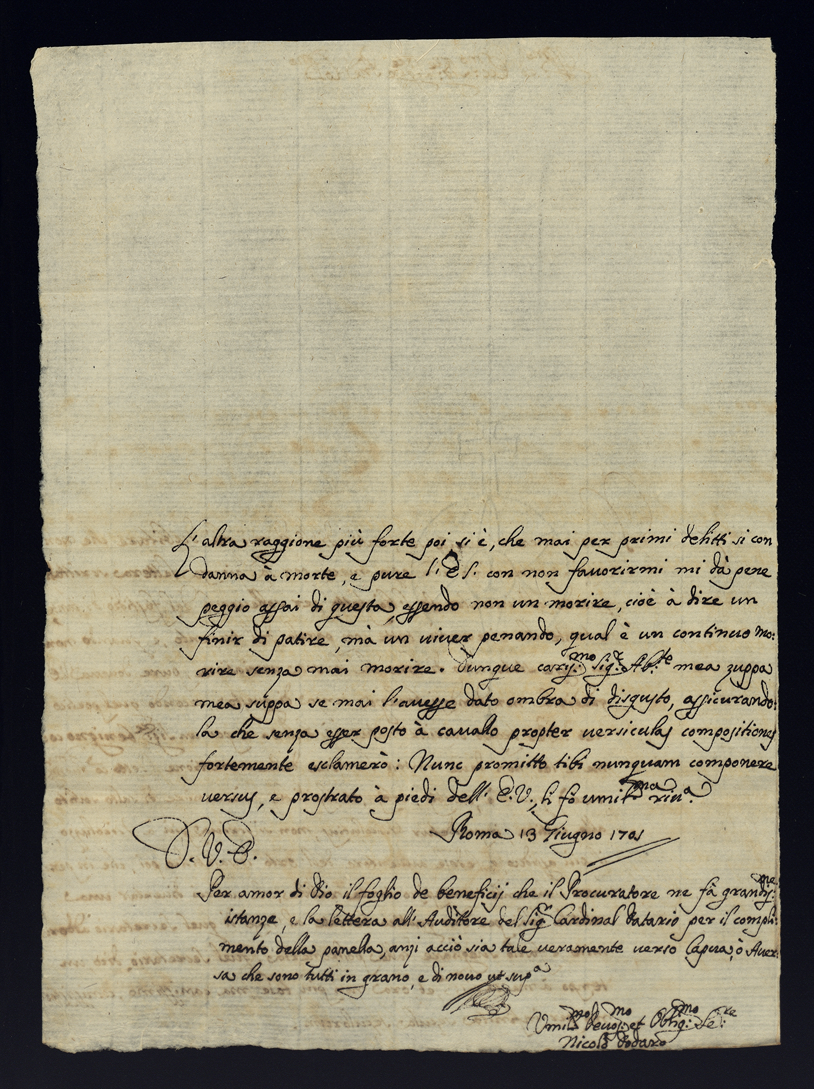 L'altra raggione più forte poi si è, che mai per primi delitti si con
danna à morte, e pure l'E.S. con non favorirmi mi dà pene
peggio assai di questa, essendo non un morire, cioè à dire un
finir di patire, mà un viver penando, qual è un continuo mo:
rire senza mai morire. Dunque cariss:mo Sig.r Ab.te mea zuppa
mea suppa se mai l'avesse dato ombra di disgusto, assicurando:
la che senza esser posto à cavallo propter versiculas compositiones
fortemente esclamerò: Nunc promitto tibi nunquam componere
versus, e prostrato à piedi dell'E.V. li fò umil:ma riv.a
Roma 13 Giugno 1701
D.V.E.
Per amor di Dio il foglio de beneficij che il Procuratore ne fà grandiss:me
istanze, e la lettera all'Auditore del Sig.r Cardinal Datario per il compli
mento della panella, anzi acciò sia tale veramente verso Capua, ò Aver:
sa che sono tutti in grano, e di novo ut sup.a
Umil:mo Devot:mo et Oblig:mo Se:re
Nicolò Dodaro